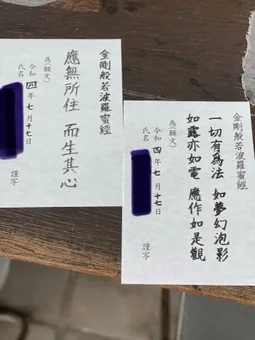 金剛般若波羅蜜經
為(願文)
應無所住 而生其心
令和四年七月十七日
氏名
謹写
金剛般若波羅蜜經
一切有為法 如夢幻泡影
如露亦如電 應作如是觀
為(願文)
令和四年七月十七日
氏名
謹写